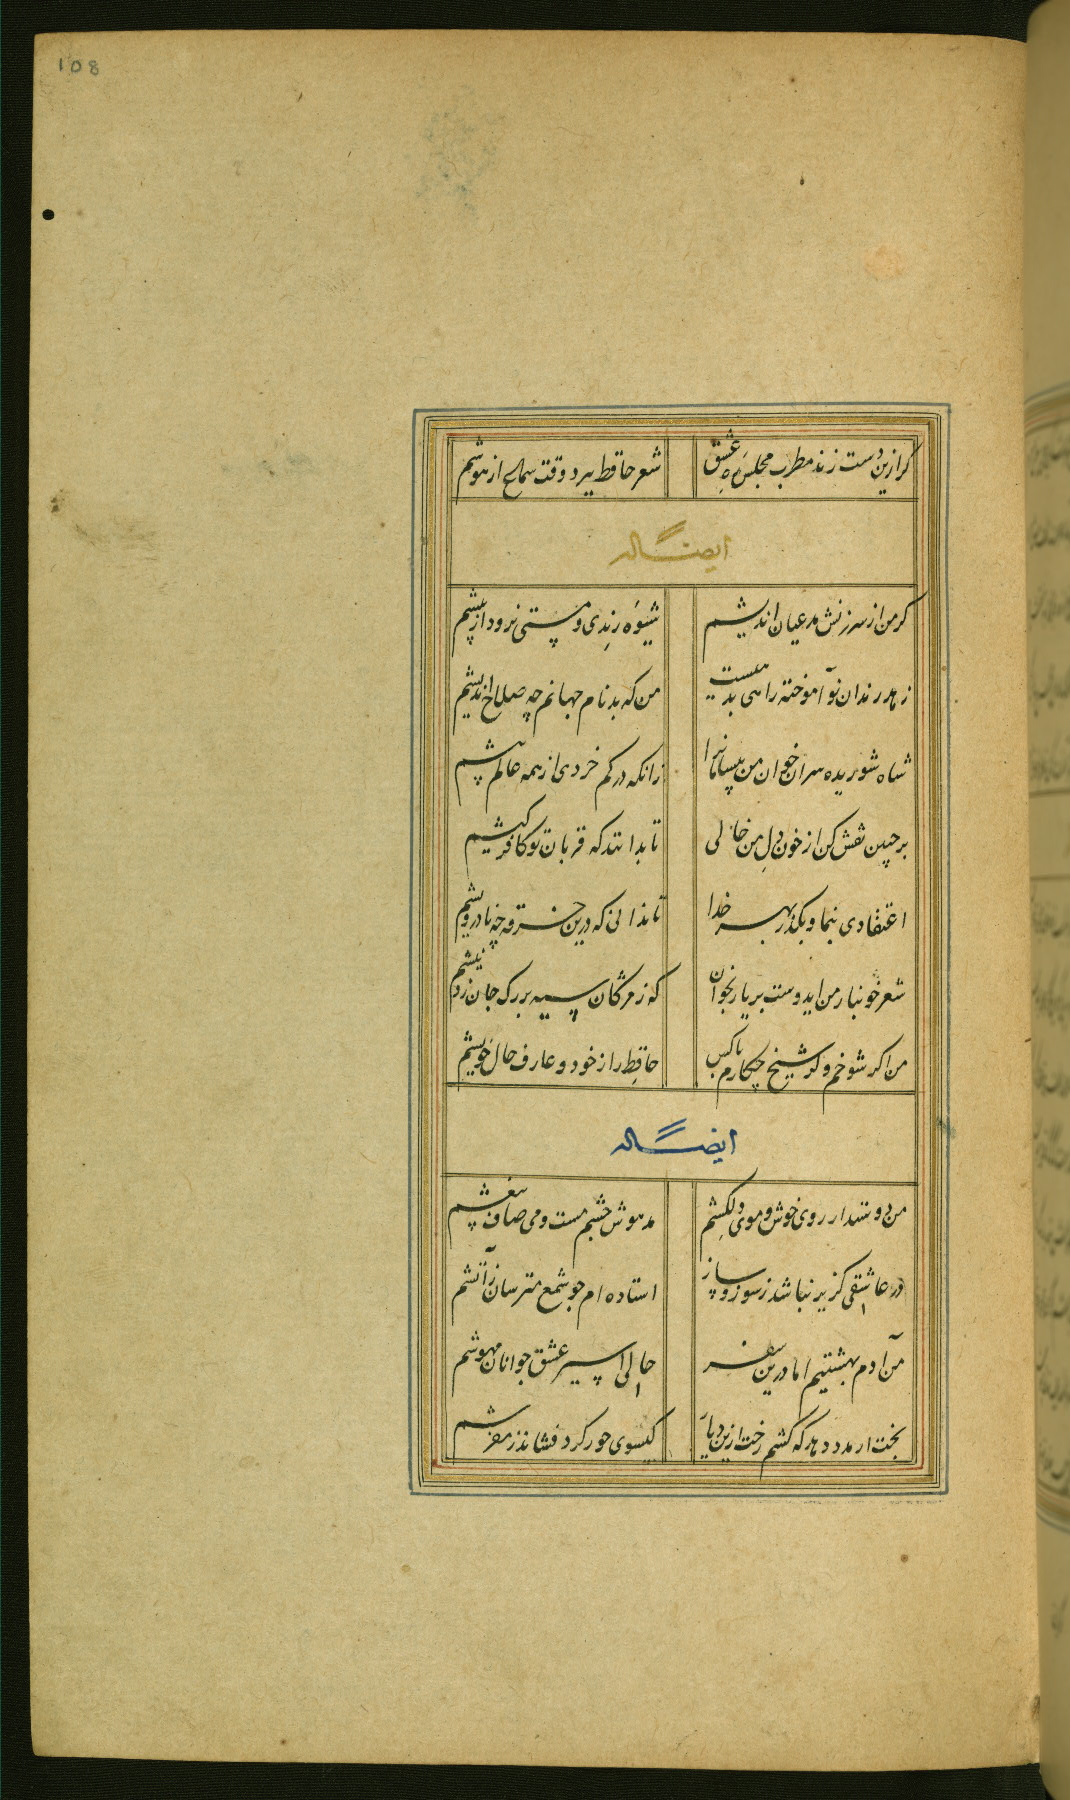 108
گر ازین دست زند مطرب مجلس ره عشق شعر حافظ ببرد وقت سماع از هوشم
ایضاً له
گر من از سرزنش مدعیان اندیشم شیوه رندی و مستی نرود از پیشم
زهد رندان نوآموخته راهی بدهیست من که بدنام جهانم چه صلاح اندیشم
شاه شوریده سران خوان من بیسامانرا زانکه در کم خردی از همه عالم بیشم
بر جبین نقش کن از خون دل من خالی تا بدانند که قربان تو کافر کیشم
اعتقادی بنما و بگذر بهر خدا تا ندانی که درین خرقه چه نادرویشم
شعر خونبار من ایدوست بر یار بخوان که ز مژگان سیه بر رگ جان زد نیشم
من اگر رندم و گر شیخ چکارم با کس حافظ راز خود و عارف حال خویشم
ایضاً له
من دوستدار روی خوش و موی دلکشم مدهوش چشم مست و می صاف بیغشم
در عاشقی گزیر نباشد ز سوز و ساز استاده ام چو شمع مترسان ز آتشم
من آدم بهشتیم اما درین سفر حالی اسیر عشق جوانان مهوشم
بخت ار مدد دهد که کشم رخت ازین دیار گیسوی حور گرد فشاند ز مفرشم